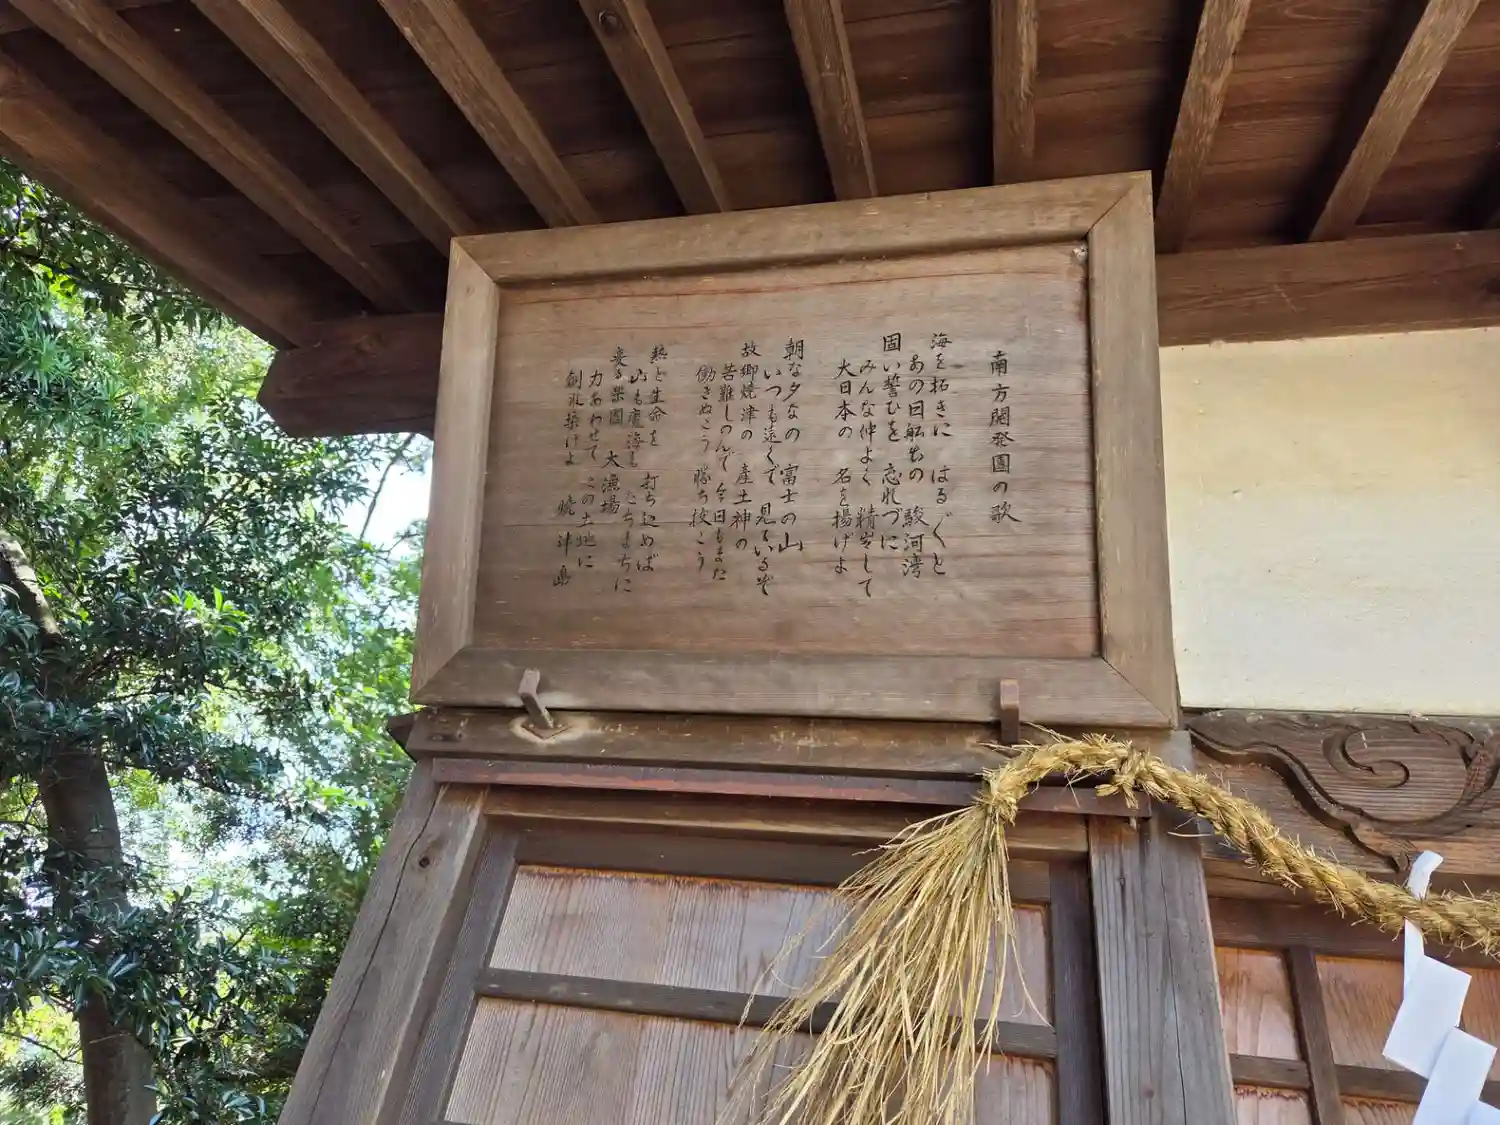 南方開発團の歌
海を拓きに はるぐと
あの日船出の 駿河湾
固い誓ひを 忘れづに
みんな仲よく 精出して
大日本の 名を揚げよ
朝な夕なの 富士の山
いつも遠くで 見ているぞ
故郷焼津の 産土神の
苦難しのんで 今日もまた
働きぬこう 勝ち抜こう
熱と生命を 打ち込めば
山も魔海も たちまちに
変る楽園 大漁場
力あわせて この土地に
創れ築けよ 焼津島